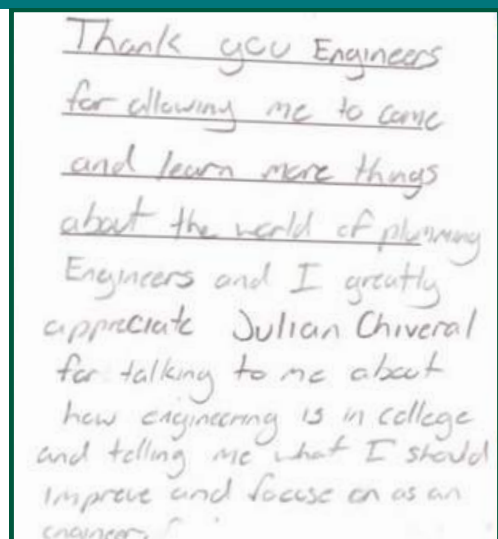 Thank you Engineers
for allowing me to come
and learn more things
about the world of plumming
Engineers and I greatly
appreciate Julian Chiveral
for talking to me about
how engineering is in college
and telling me what I should
improve and focuse on as an
engineer.